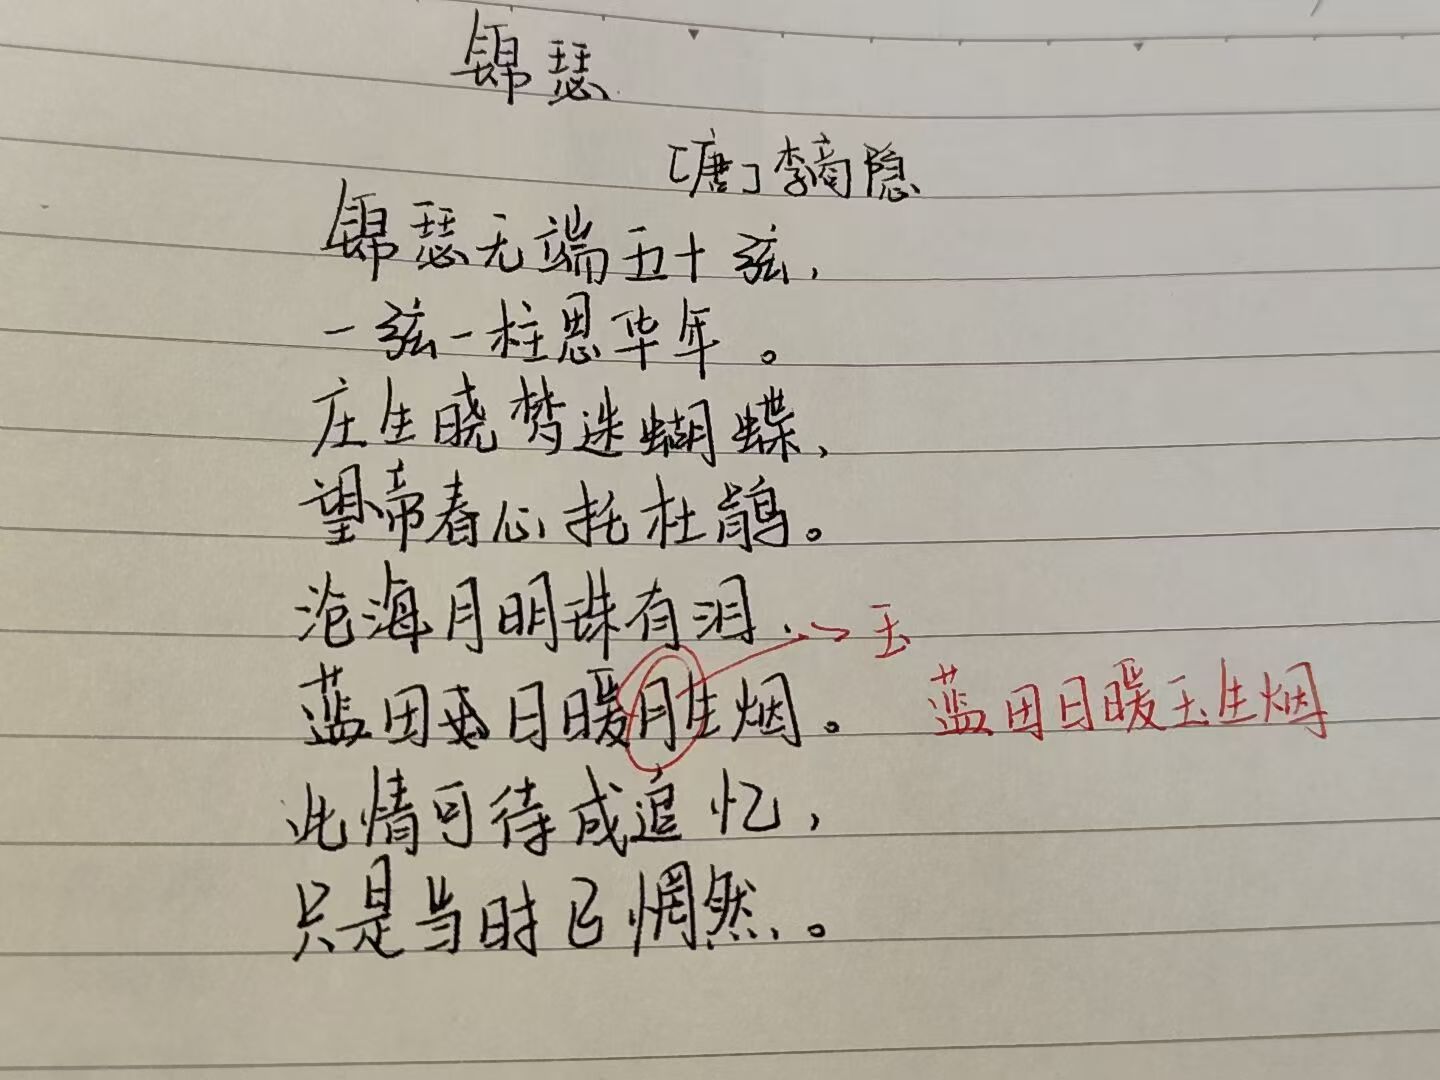 锦瑟
[唐]李商隐
锦瑟无端五十弦,
一弦一柱思华年。
庄生晓梦迷蝴蝶,
望帝春心托杜鹃。
沧海月明珠有泪,→玉
蓝田日暖月生烟。 蓝田日暖玉生烟
此情可待成追忆,
只是当时已惘然。